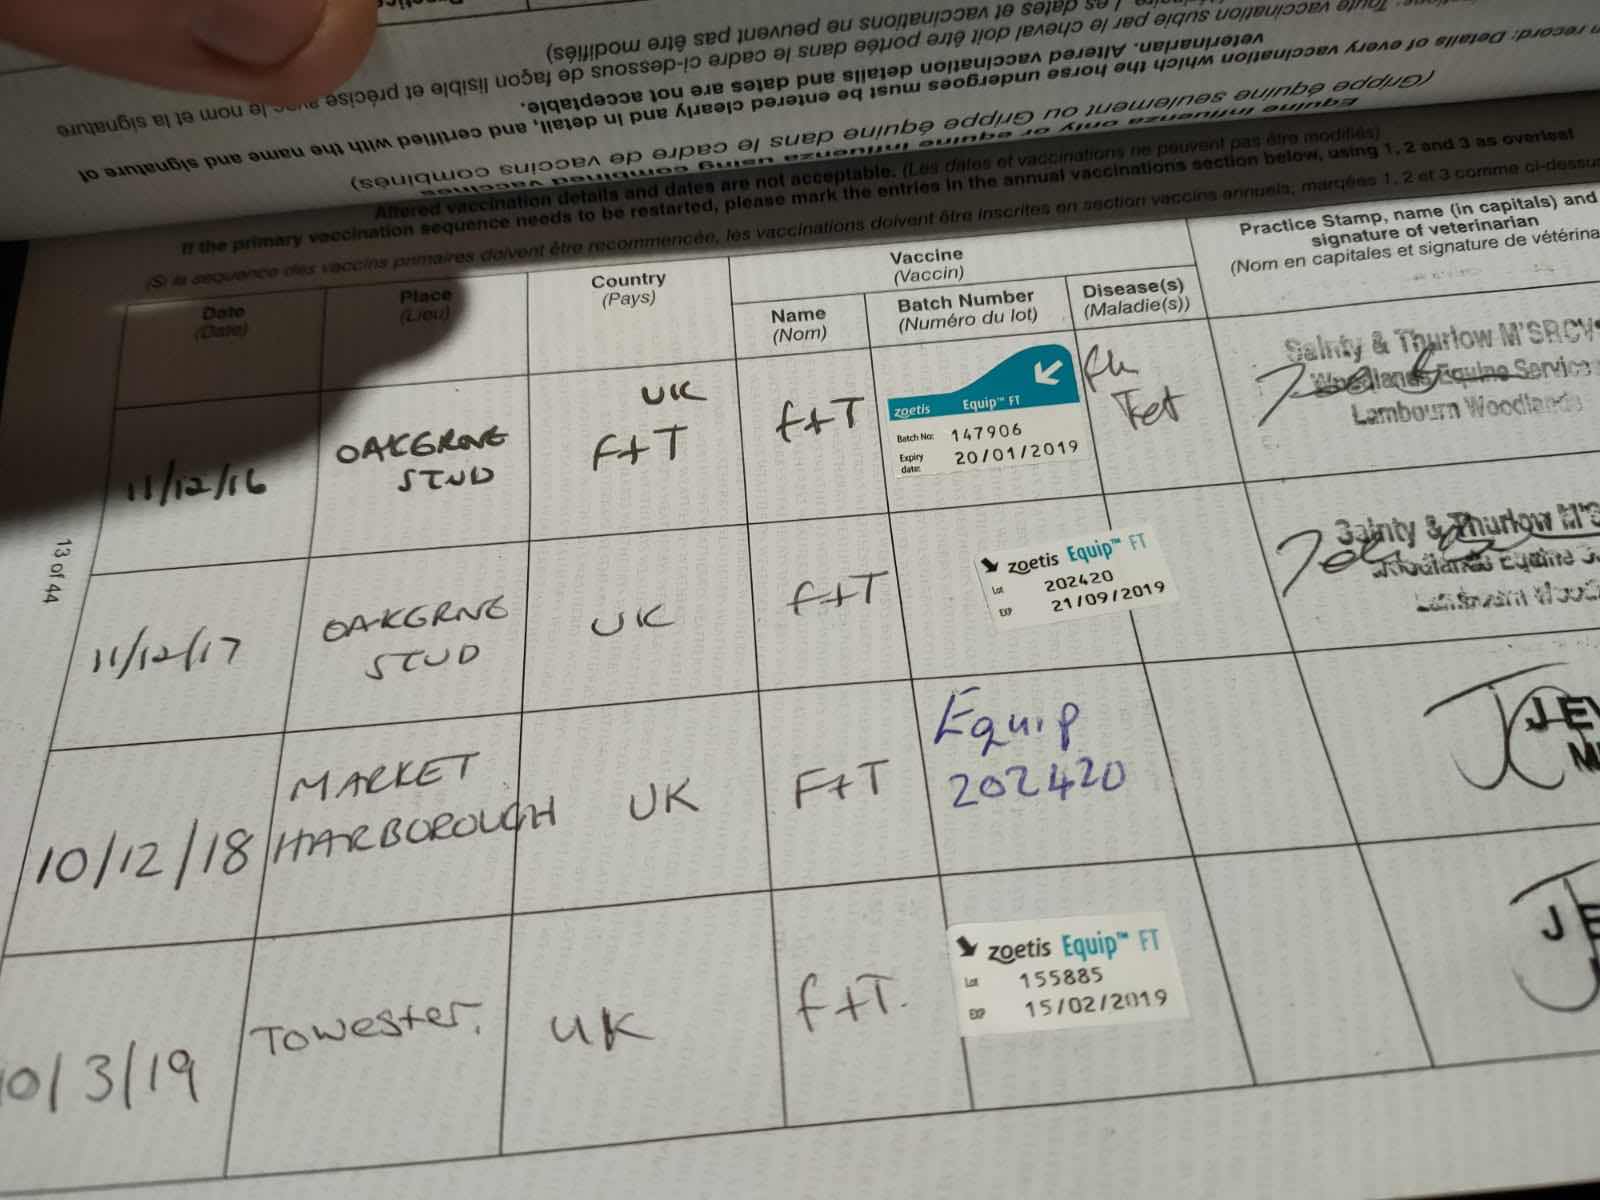 (Nom en capitales et signature de vétérina
signature of veterinarian
Practice Stamp, name (in capitals) and
veterinarian. Altered vaccination details and dates are not acceptable.
(Grippe équine seulement ou Grippe équine dans le cadre de vaccins combinés)
Equine influenza only or equine influenza using combined vaccines
n record: Details of every vaccination which the horse undergoes must be entered clearly and in detail, and certified with the name and signature of
Toute vaccination subie par le cheval doit être portée dans le cadre ci-dessous de façon lisible et précise avec le nom et la signature
Les dates et vaccinations ne peuvent pas être modifiés)
Altered vaccination details and dates are not acceptable. (Les dates et vaccinations ne peuvent pas être modifiés)
If the primary vaccination sequence needs to be restarted, please mark the entries in the annual vaccinations section below, using 1, 2 and 3 as overleaf
(Si la sequence des vaccins primaires doivent être recommencée, les vaccinations doivent être inscrites en section vaccins annuels, marqées 1, 2 et 3 comme ci-dessu
Date
(Date)
Place
(Lieu)
Country
(Pays)
Vaccine
(Vaccin)
Name
(Nom)
Batch Number
(Numéro du lot)
Disease(s)
(Maladie(s))
11/12/16
OAKGROVE
STUD
UK
F+T
F+T
zoetis Equip™ FT
Batch No: 147906
Expiry date: 20/01/2019
Flu
Tet
Sainty & Thurlow M'SRCV
Woodlands Equine Service
Lambourn Woodlands
11/12/17
OAKGROVE
STUD
UK
F+T
zoetis Equip™ FT
Lot 202420
EXP 21/09/2019
Sainty & Thurlow M'S
Woodlands Equine S
Lambourn Wood
10/12/18
MARKET
HARBOROUGH
UK
F+T
Equip
202420
JEV
M
10/3/19
Towester.
UK
F+T.
zoetis Equip™ FT
Lot 155885
EXP 15/02/2019
JE
13 of 44